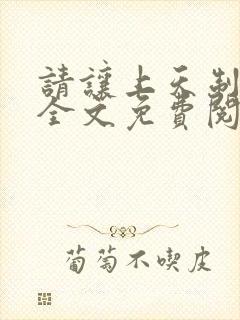 請讓上天制
全文免費閱
葡萄不喫皮